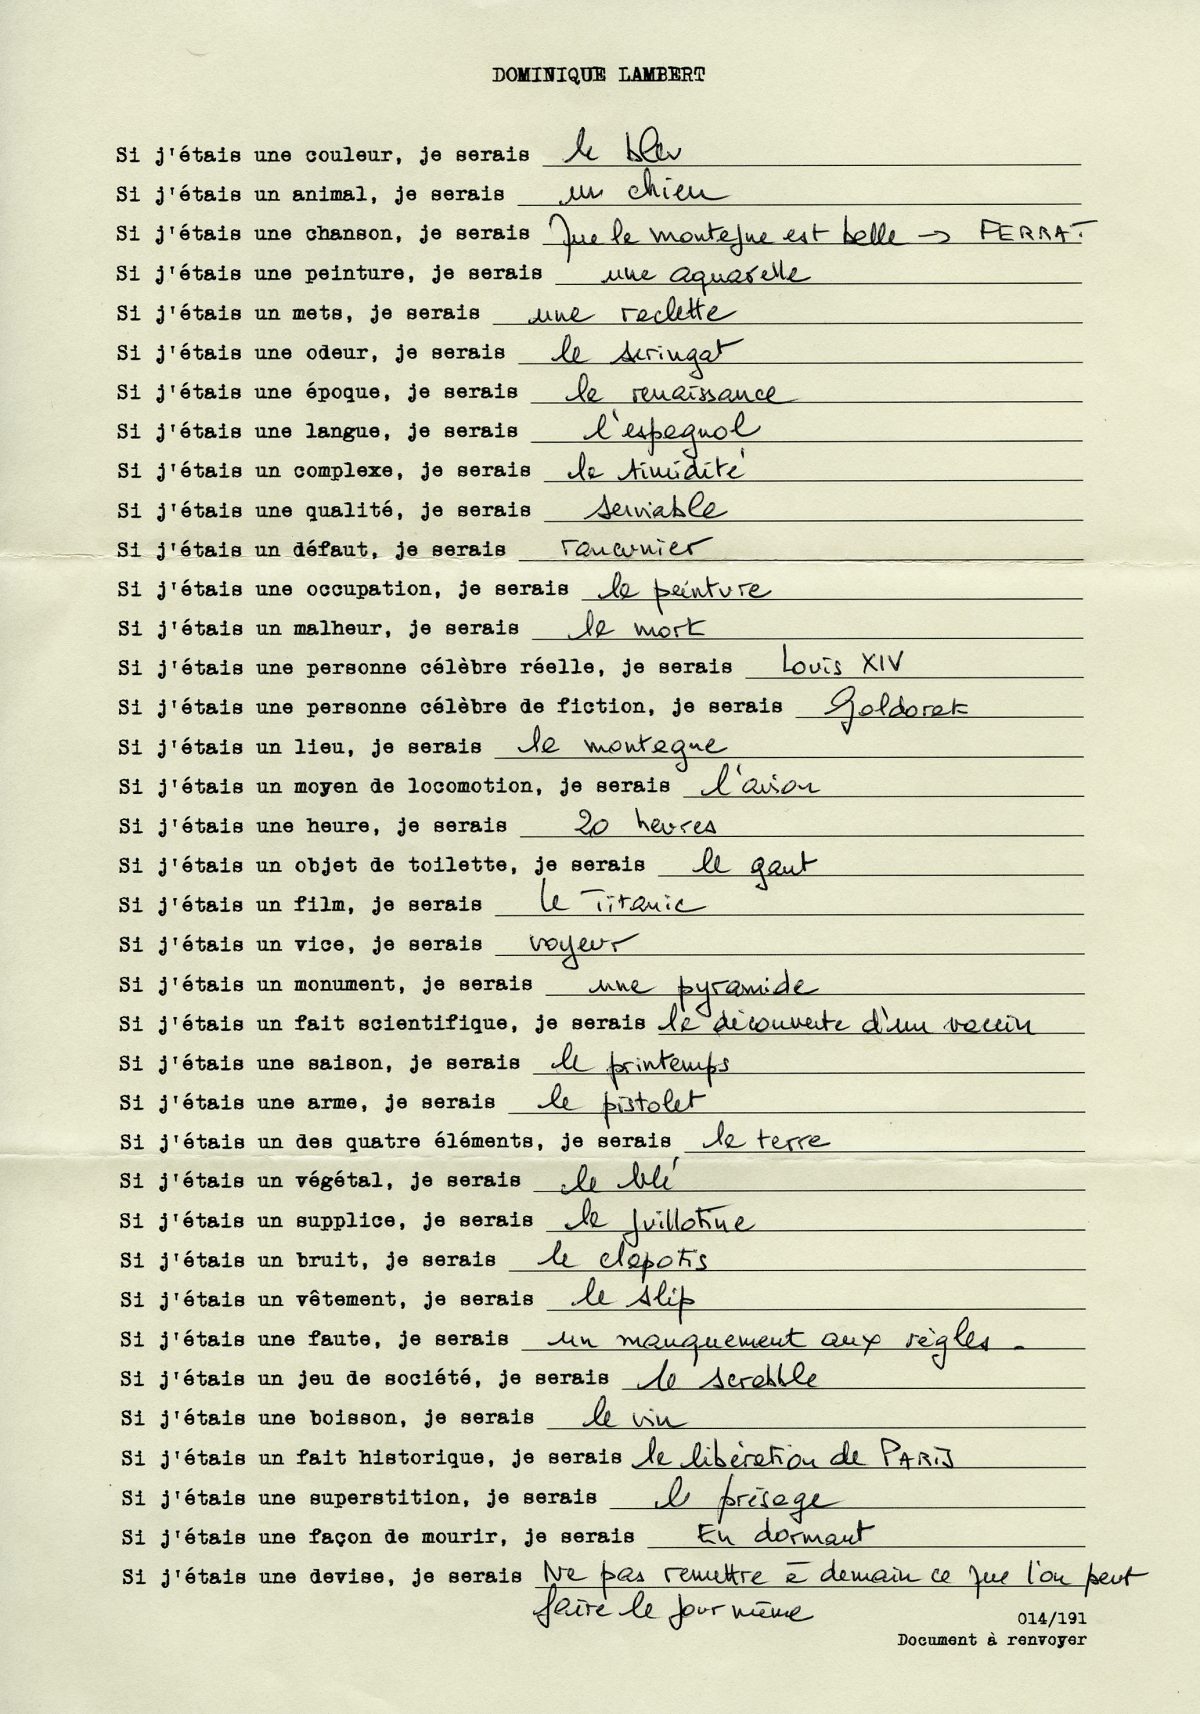 DOMINIQUE LAMBERT
Si j'étais une couleur, je serais le bleu
Si j'étais un animal, je serais un chien
Si j'étais une chanson, je serais Que la montagne est belle → FERRAT
Si j'étais une peinture, je serais une aquarelle
Si j'étais un mets, je serais une raclette
Si j'étais une odeur, je serais le seringat
Si j'étais une époque, je serais la renaissance
Si j'étais une langue, je serais l'espagnol
Si j'étais un complexe, je serais la timidité
Si j'étais une qualité, je serais serviable
Si j'étais un défaut, je serais rancunier
Si j'étais une occupation, je serais la peinture
Si j'étais un malheur, je serais la mort
Si j'étais une personne célèbre réelle, je serais Louis XIV
Si j'étais une personne célèbre de fiction, je serais Goldorak
Si j'étais un lieu, je serais la montagne
Si j'étais un moyen de locomotion, je serais l'avion
Si j'étais une heure, je serais 20 heures
Si j'étais un objet de toilette, je serais le gant
Si j'étais un film, je serais Le Titanic
Si j'étais un vice, je serais voyeur
Si j'étais un monument, je serais une pyramide
Si j'étais un fait scientifique, je serais la découverte d'un vaccin
Si j'étais une saison, je serais le printemps
Si j'étais une arme, je serais le pistolet
Si j'étais un des quatre éléments, je serais la terre
Si j'étais un végétal, je serais le blé
Si j'étais un supplice, je serais la guillotine
Si j'étais un bruit, je serais le clapotis
Si j'étais un vêtement, je serais le slip
Si j'étais une faute, je serais un manquement aux règles.
Si j'étais un jeu de société, je serais le scrabble
Si j'étais une boisson, je serais le vin
Si j'étais un fait historique, je serais la libération de PARIS
Si j'étais une superstition, je serais le présage
Si j'étais une façon de mourir, je serais En dormant
Si j'étais une devise, je serais Ne pas remettre à demain ce que l'on peut
faire le jour même
014/191
Document à renvoyer